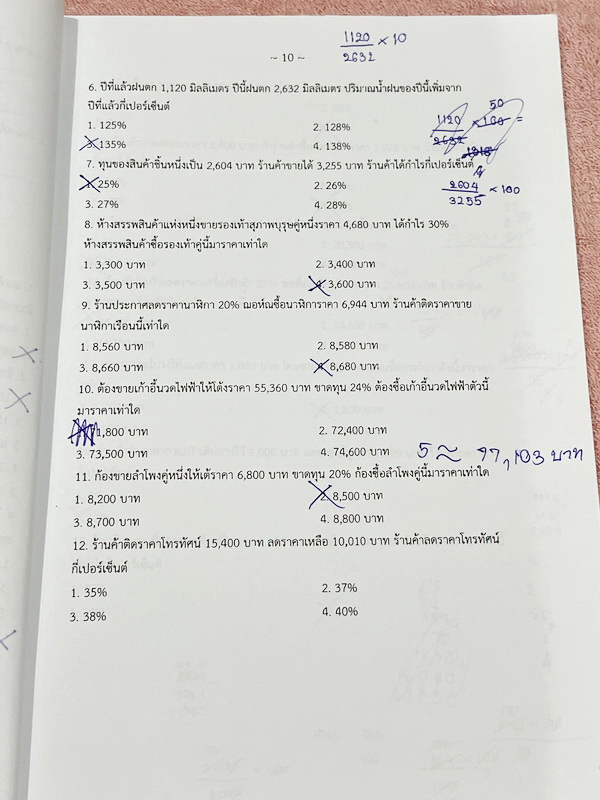 1120
2632 × 10
~ 10 ~
6. ปีที่แล้วฝนตก 1,120 มิลลิเมตร ปีนี้ฝนตก 2,632 มิลลิเมตร ปริมาณน้ำฝนของปีนี้เพิ่มจาก
ปีที่แล้วกี่เปอร์เซ็นต์
50
1. 125% 2. 128%
1120 × 100 =
2632
3. 135% 4. 138%
7. ทุนของสินค้าชิ้นหนึ่งเป็น 2,604 บาท ร้านค้าขายได้ 3,255 บาท ร้านค้าได้กำไรกี่เปอร์เซ็นต์
1. 25% 2. 26%
2604 × 100
3255
3. 27% 4. 28%
8. ห้างสรรพสินค้าแห่งหนึ่งขายรองเท้าสุภาพบุรุษคู่หนึ่งราคา 4,680 บาท ได้กำไร 30%
ห้างสรรพสินค้าซื้อรองเท้าคู่นี้มาราคาเท่าใด
1. 3,300 บาท 2. 3,400 บาท
3. 3,500 บาท 4. 3,600 บาท
9. ร้านประกาศลดราคานาฬิกา 20% ฌอห์ณซื้อนาฬิการาคา 6,944 บาท ร้านค้าติดราคาขาย
นาฬิกาเรือนนี้เท่าใด
1. 8,560 บาท 2. 8,580 บาท
3. 8,660 บาท 4. 8,680 บาท
10. ต้องขายเก้าอี้นวดไฟฟ้าให้โต้งราคา 55,360 บาท ขาดทุน 24% ต้องซื้อเก้าอี้นวดไฟฟ้าตัวนี้
มาราคาเท่าใด
71,800 บาท 2. 72,400 บาท
3. 73,500 บาท 4. 74,600 บาท
11. ก้องขายลำโพงคู่หนึ่งให้เต้ราคา 6,800 บาท ขาดทุน 20% ก้องซื้อลำโพงคู่นี้มาราคาเท่าใด
1. 8,200 บาท 2. 8,500 บาท
3. 8,700 บาท 4. 8,800 บาท
12. ร้านค้าติดราคาโทรทัศน์ 15,400 บาท ลดราคาเหลือ 10,010 บาท ร้านค้าลดราคาโทรทัศน์
กี่เปอร์เซ็นต์
1. 35% 2. 37%
3. 38% 4. 40%